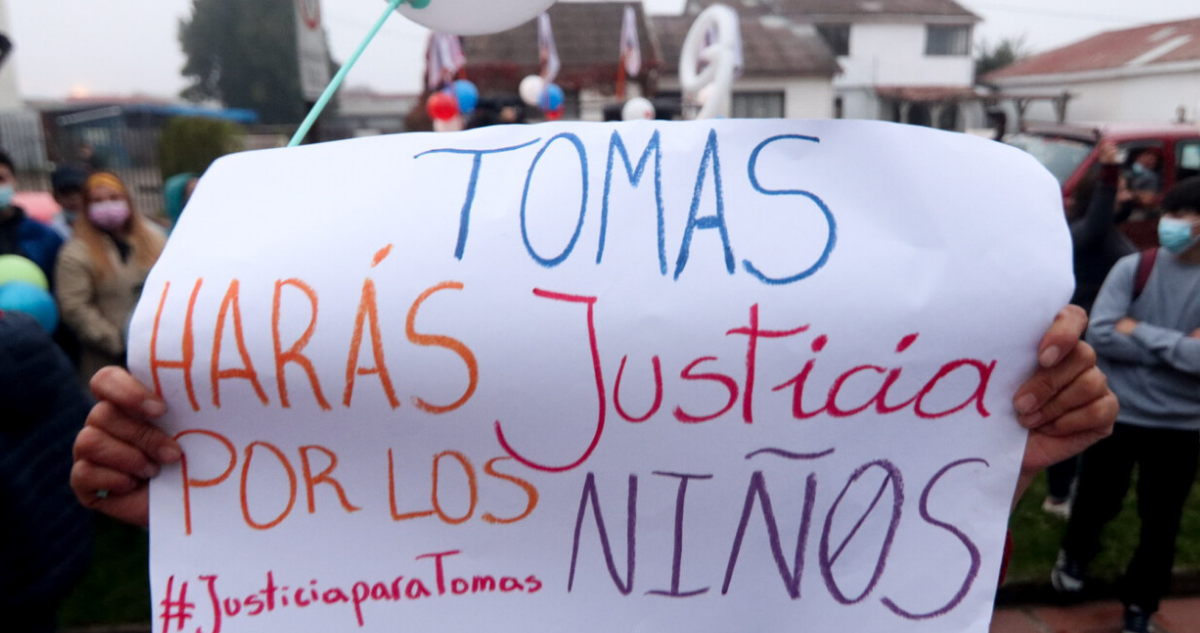 TOMAS
HARÁS Justicia
POR LOS NIÑOS
#JusticiaparaTomas